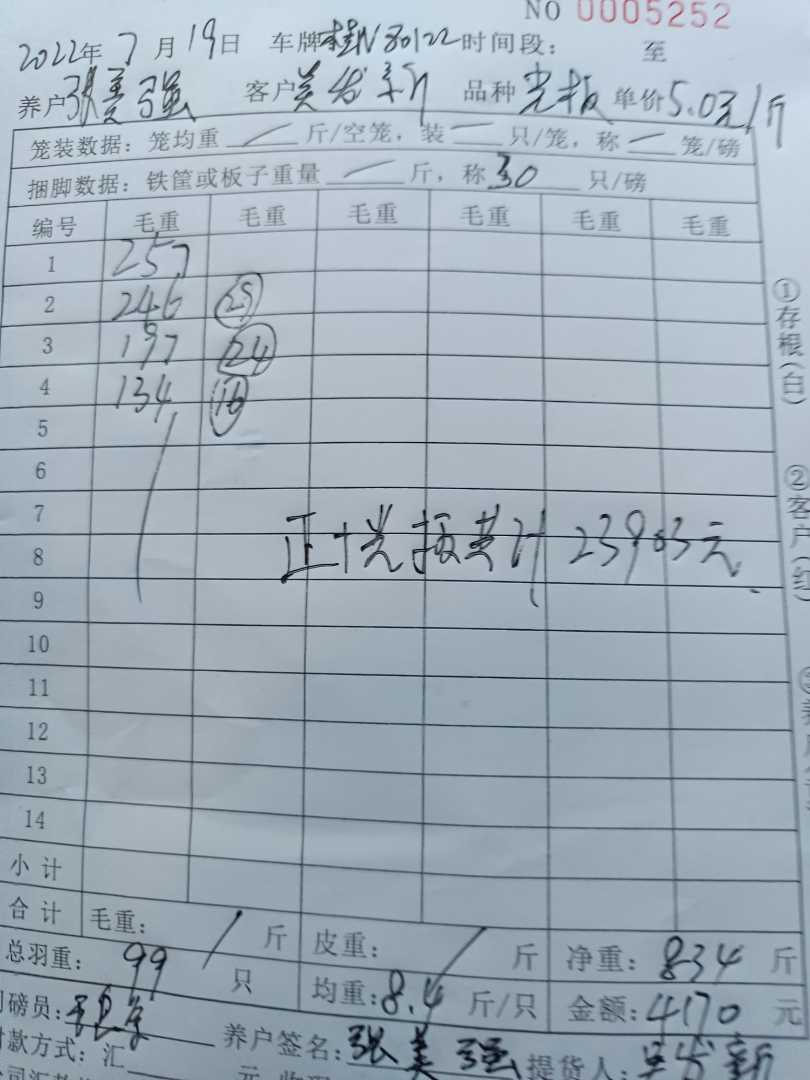 NO 0005252
2022年7月19日 车牌桂N80122时间段: 至
养户张美强 客户吴发新 品种光板 单价5.0元/斤
笼装数据: 笼均重 / 斤/空笼, 装 一 只/笼, 称 一 笼/磅
捆脚数据: 铁筐或板子重量 一 斤, 称30只/磅
编号 毛重 毛重 毛重 毛重 毛重 毛重
1 257
2 246 29
3 197 24
4 134 16
5
6
7
正+光板共计23903元
8
9
10
11
12
13
14
小计
合计 毛重: / 斤 皮重: / 斤 净重: 834 斤
总羽重: 99 只 均重: 8.4 斤/只 金额: 4170 元
磅员: 养户签名: 张美强 提货人: 吴发新
付款方式: 汇 元
①存根(白)
②客户(红)
③养户